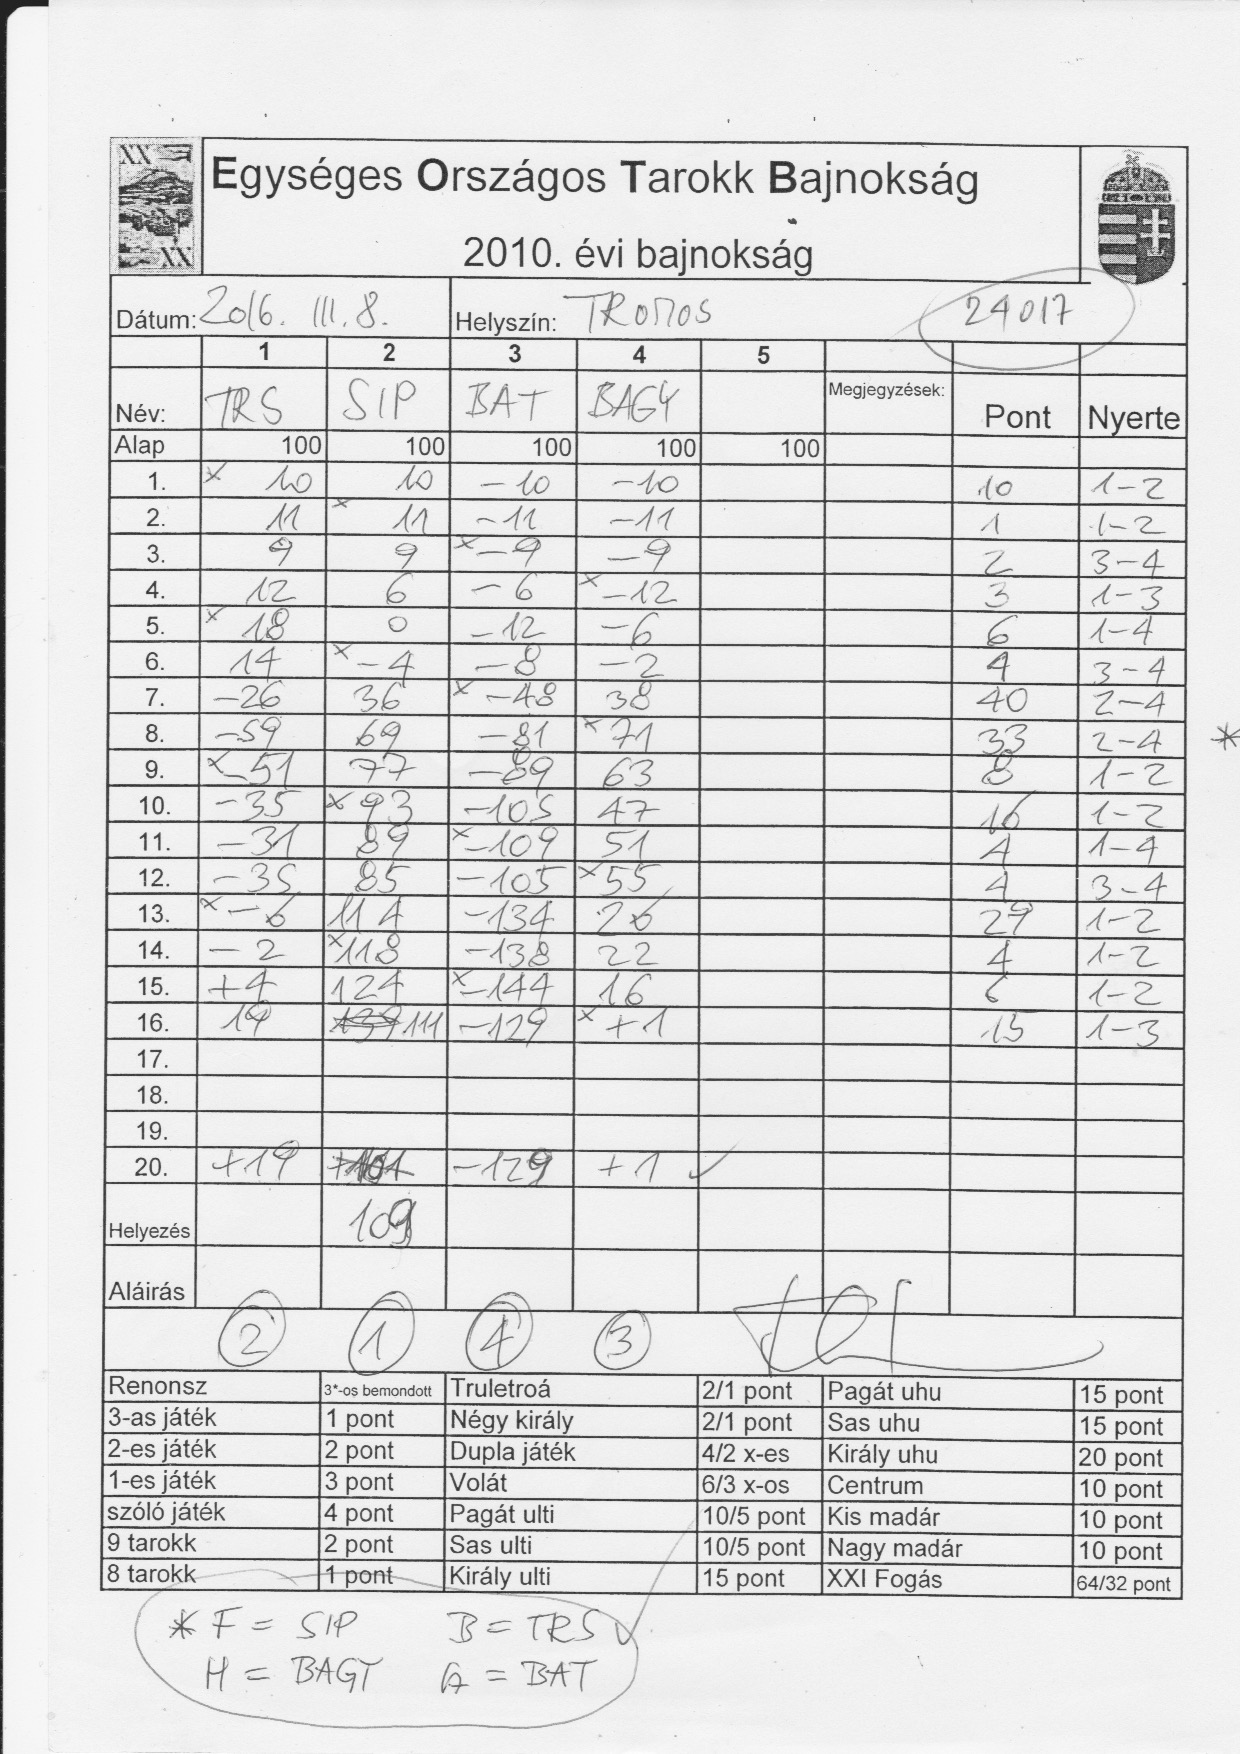 XX
Egységes Országos Tarokk Bajnokság
XX
2010. évi bajnokság
Dátum: 2016. III. 8. Helyszín: TROMOS 24017
1 2 3 4 5
Név: TRS SIP BAT BAGY Megjegyzések: Pont Nyerte
Alap 100 100 100 100 100
1. x 10 10 -10 -10 10 1-2
2. 11 x 11 -11 -11 1 1-2
3. 9 9 x -9 -9 2 3-4
4. 12 6 -6 x -12 3 1-3
5. x 18 0 -12 -6 6 1-4
6. 14 x -4 -8 -2 4 3-4
7. -26 36 x -48 38 40 2-4
8. -59 69 -81 x 71 33 2-4 *
9. x -51 77 -89 63 8 1-2
10. -35 x 93 -105 47 16 1-2
11. -31 89 x -109 51 4 1-4
12. -35 85 -105 x 55 4 3-4
13. x -6 114 -134 26 29 1-2
14. -2 x 118 -138 22 4 1-2
15. +4 124 x -144 16 6 1-2
16. 19 139 111 -129 x +1 15 1-3
17.
18.
19.
20. +19 -129 +1 ✓
Helyezés 109
Aláírás
2 1 4 3
Renonsz 3*-os bemondott Truletroá 2/1 pont Pagát uhu 15 pont
3-as játék 1 pont Négy király 2/1 pont Sas uhu 15 pont
2-es játék 2 pont Dupla játék 4/2 x-es Király uhu 20 pont
1-es játék 3 pont Volát 6/3 x-os Centrum 10 pont
szóló játék 4 pont Pagát ulti 10/5 pont Kis madár 10 pont
9 tarokk 2 pont Sas ulti 10/5 pont Nagy madár 10 pont
8 tarokk 1 pont Király ulti 15 pont XXI Fogás 64/32 pont
* F = SIP B = TRS ✓
H = BAGY A = BAT